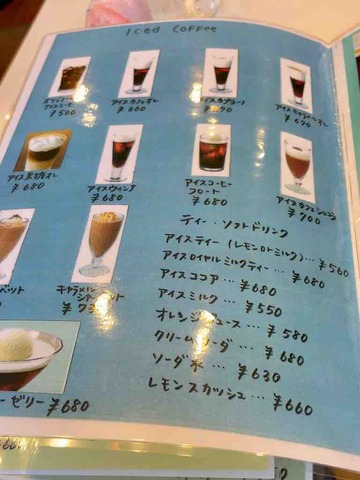 Iced Coffee
アイスコーヒー
¥560
アイスカフェオレ
¥660
アイスカプチーノ
アイスキャラメルオレ
¥690
アイス黒糖オレ
¥680
アイスウィンナ
¥680
アイスコーヒー
フロート
¥680
¥700
ベット
キャラメル
シャーベット
ゼリー ¥680
ティー・ソフトドリンク
アイスティー (レモンorミルク)… ¥560
アイスロイヤルミルクティー… ¥680
アイスココア … ¥680
アイスミルク … ¥550
オレンジジュース … ¥580
クリームソーダ … ¥680
ソーダ水 … ¥630
レモンスカッシュ … ¥660